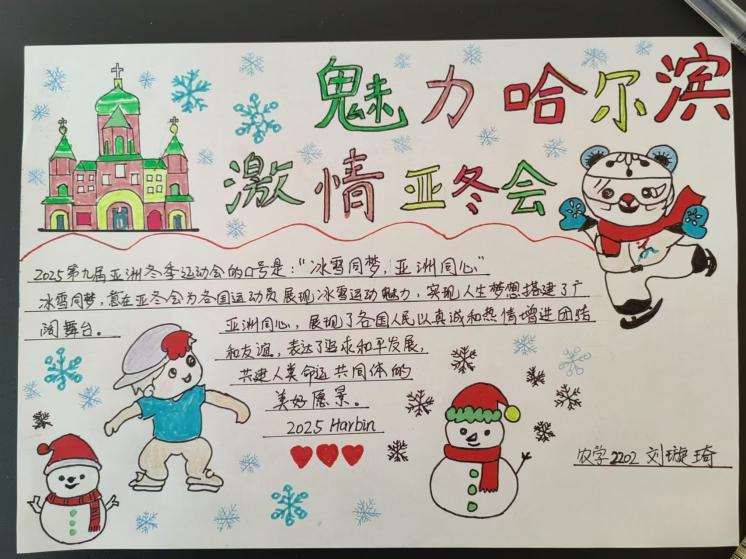 魅力哈尔滨
激情亚冬会
2025第九届亚洲冬季运动会的口号是："冰雪同梦，亚洲同心"
冰雪同梦，意在亚冬会为各国运动员展现冰雪运动魅力，实现人生梦想搭建了广
阔舞台。
亚洲同心，展现了各国人民以真诚和热情增进团结
和友谊，表达了追求和平发展，
共建人类命运共同体的
美好愿景。
2025 Harbin
农学2202 刘璇琦